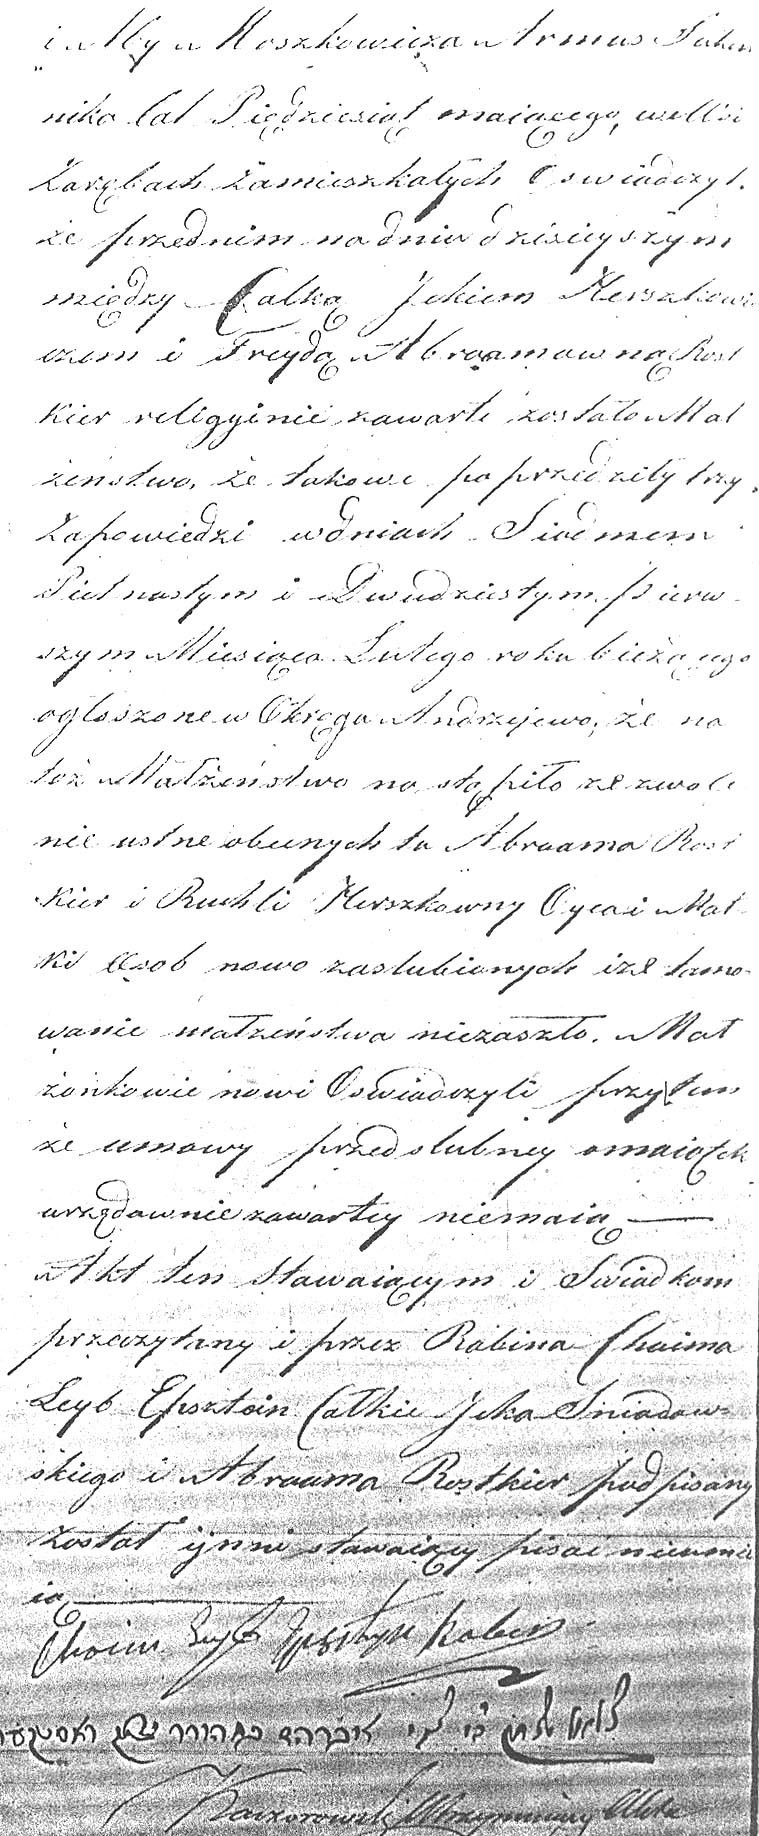 i Alły Moszkowicza Armus Suken
nika lat Piędziesiąt maiącego, w Wsi
Zarębach Zamieszkałych Oswiadczył.
że przednim na dniu dzisieyszym
między Całką Jckiem Herszkowi
czem i Freydą Abraamowną Rost
kier religyinie zawarte zostało Mał
żeństwo, że takowe poprzedziły trzy
Zapowiedzi w dniach Siodmem
Pietnastym i Dwudziestym pierw
szym Miesiąca Lutego roku bieżącego
ogłoszone w Okręgu Andrzejewo, że na
toż Małżeństwo nastąpiło zezwole
nie ustne obecnych tu Abraama Rost
kier i Ruchli Herszkowny Oyca i Mat
ki osob nowo zaslubionych i że tamo
wanie małżeństwa niezaszło. Mał
żonkowie nowi Oswiadczyli przytem
że umowy przedslubney o maiątek
urzędownie zawartey niemaią —
Akt ten Stawaiącym i Swiadkom
przeczytany i przez Rabina Chaima
Leyb Epsztein Całkie Jcka Sniadow-
skiego i Abraama Rostkier podpisany
został ynni stawaiący pisać nieumie
ią —
Chaim Leyb Epsztyn Rabin
אברהם
Kaczorowski Utrzymuiący Akta